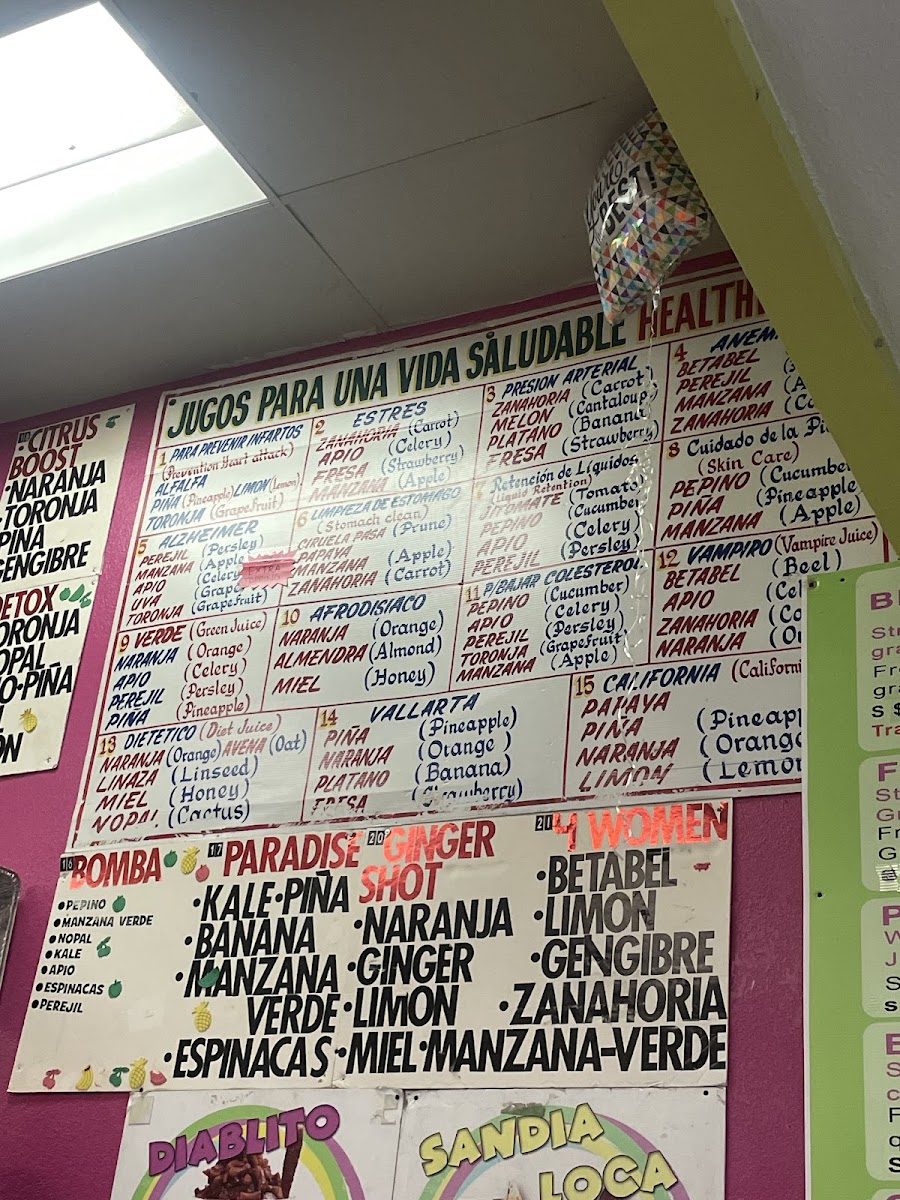 JUGOS PARA UNA VIDA SALUDABLE
1 PARA PREVENIR INFARTOS
(Prevention Heart attack)
ALFALFA
PIÑA (Pineapple) LIMON (Lemon)
TORONJA (GrapeFruit)
2 ESTRES
ZANAHORIA (Carrot)
APIO (Celery)
FRESA (Strawberry)
MANZANA (Apple)
3 PRESION ARTERIAL
ZANAHORIA (Carrot)
MELON (Cantaloup)
PLATANO (Banana)
FRESA (Strawberry)
4
BETABEL
PEREJIL
MANZANA
ZANAHORIA
5 ALZHEIMER
PEREJIL (Persley)
MANZANA (Apple)
APIO (Celery)
UVA
TORONJA (Grapefruit)
6 LIMPIEZA DE ESTOMAGO
(Stomach clean)
CIRUELA PASA (Prune)
PAPAYA
MANZANA (Apple)
ZANAHORIA (Carrot)
7 Retención de Líquidos
(Liquid Retention)
JITOMATE (Tomato)
PEPINO (Cucumber)
APIO (Celery)
PEREJIL (Persley)
8 Cuidado de la
(Skin Care)
PEPINO (Cucumber
PIÑA (Pineapple)
MANZANA (Apple)
9 VERDE (Green Juice)
NARANJA (Orange)
APIO (Celery)
PEREJIL (Persley)
PIÑA (Pineapple)
10 AFRODISIACO
NARANJA (Orange)
ALMENDRA (Almond)
MIEL (Honey)
11 P/BAJAR COLESTEROL
PEPINO (Cucumber)
APIO (Celery)
PEREJIL (Persley)
TORONJA (Grapefruit)
MANZANA (Apple)
12 VAMPIRO (Vampire Juice)
BETABEL (Beel)
APIO
ZANAHORIA
NARANJA
13 DIETETICO (Diet Juice)
NARANJA (Orange) AVENA (Oat)
LINAZA (Linseed)
MIEL (Honey)
NOPAL (Cactus)
14 VALLARTA
PIÑA (Pineapple)
NARANJA (Orange)
PLATANO (Banana)
FRESA (Strawberry)
15 CALIFORNIA
PAPAYA
PIÑA
NARANJA (Orang
LIMON (Lemon
CITRUS
BOOST
•NARANJA
•TORONJA
PIÑA
GENGIBRE
16 BOMBA
•PEPINO
•MANZANA VERDE
•NOPAL
•KALE
•APIO
•ESPINACAS
•PEREJIL
17 PARADISE
•KALE•PIÑA
•BANANA
•MANZANA
VERDE
•ESPINACAS
20 GINGER
SHOT
•NARANJA
•GINGER
•LIMON
•MIEL
21 4 WOMEN
•BETABEL
•LIMON
•GENGIBRE
•ZANAHORIA
•MANZANA-VERDE
DIABLITO
SANDIA
LOCA
BEST!